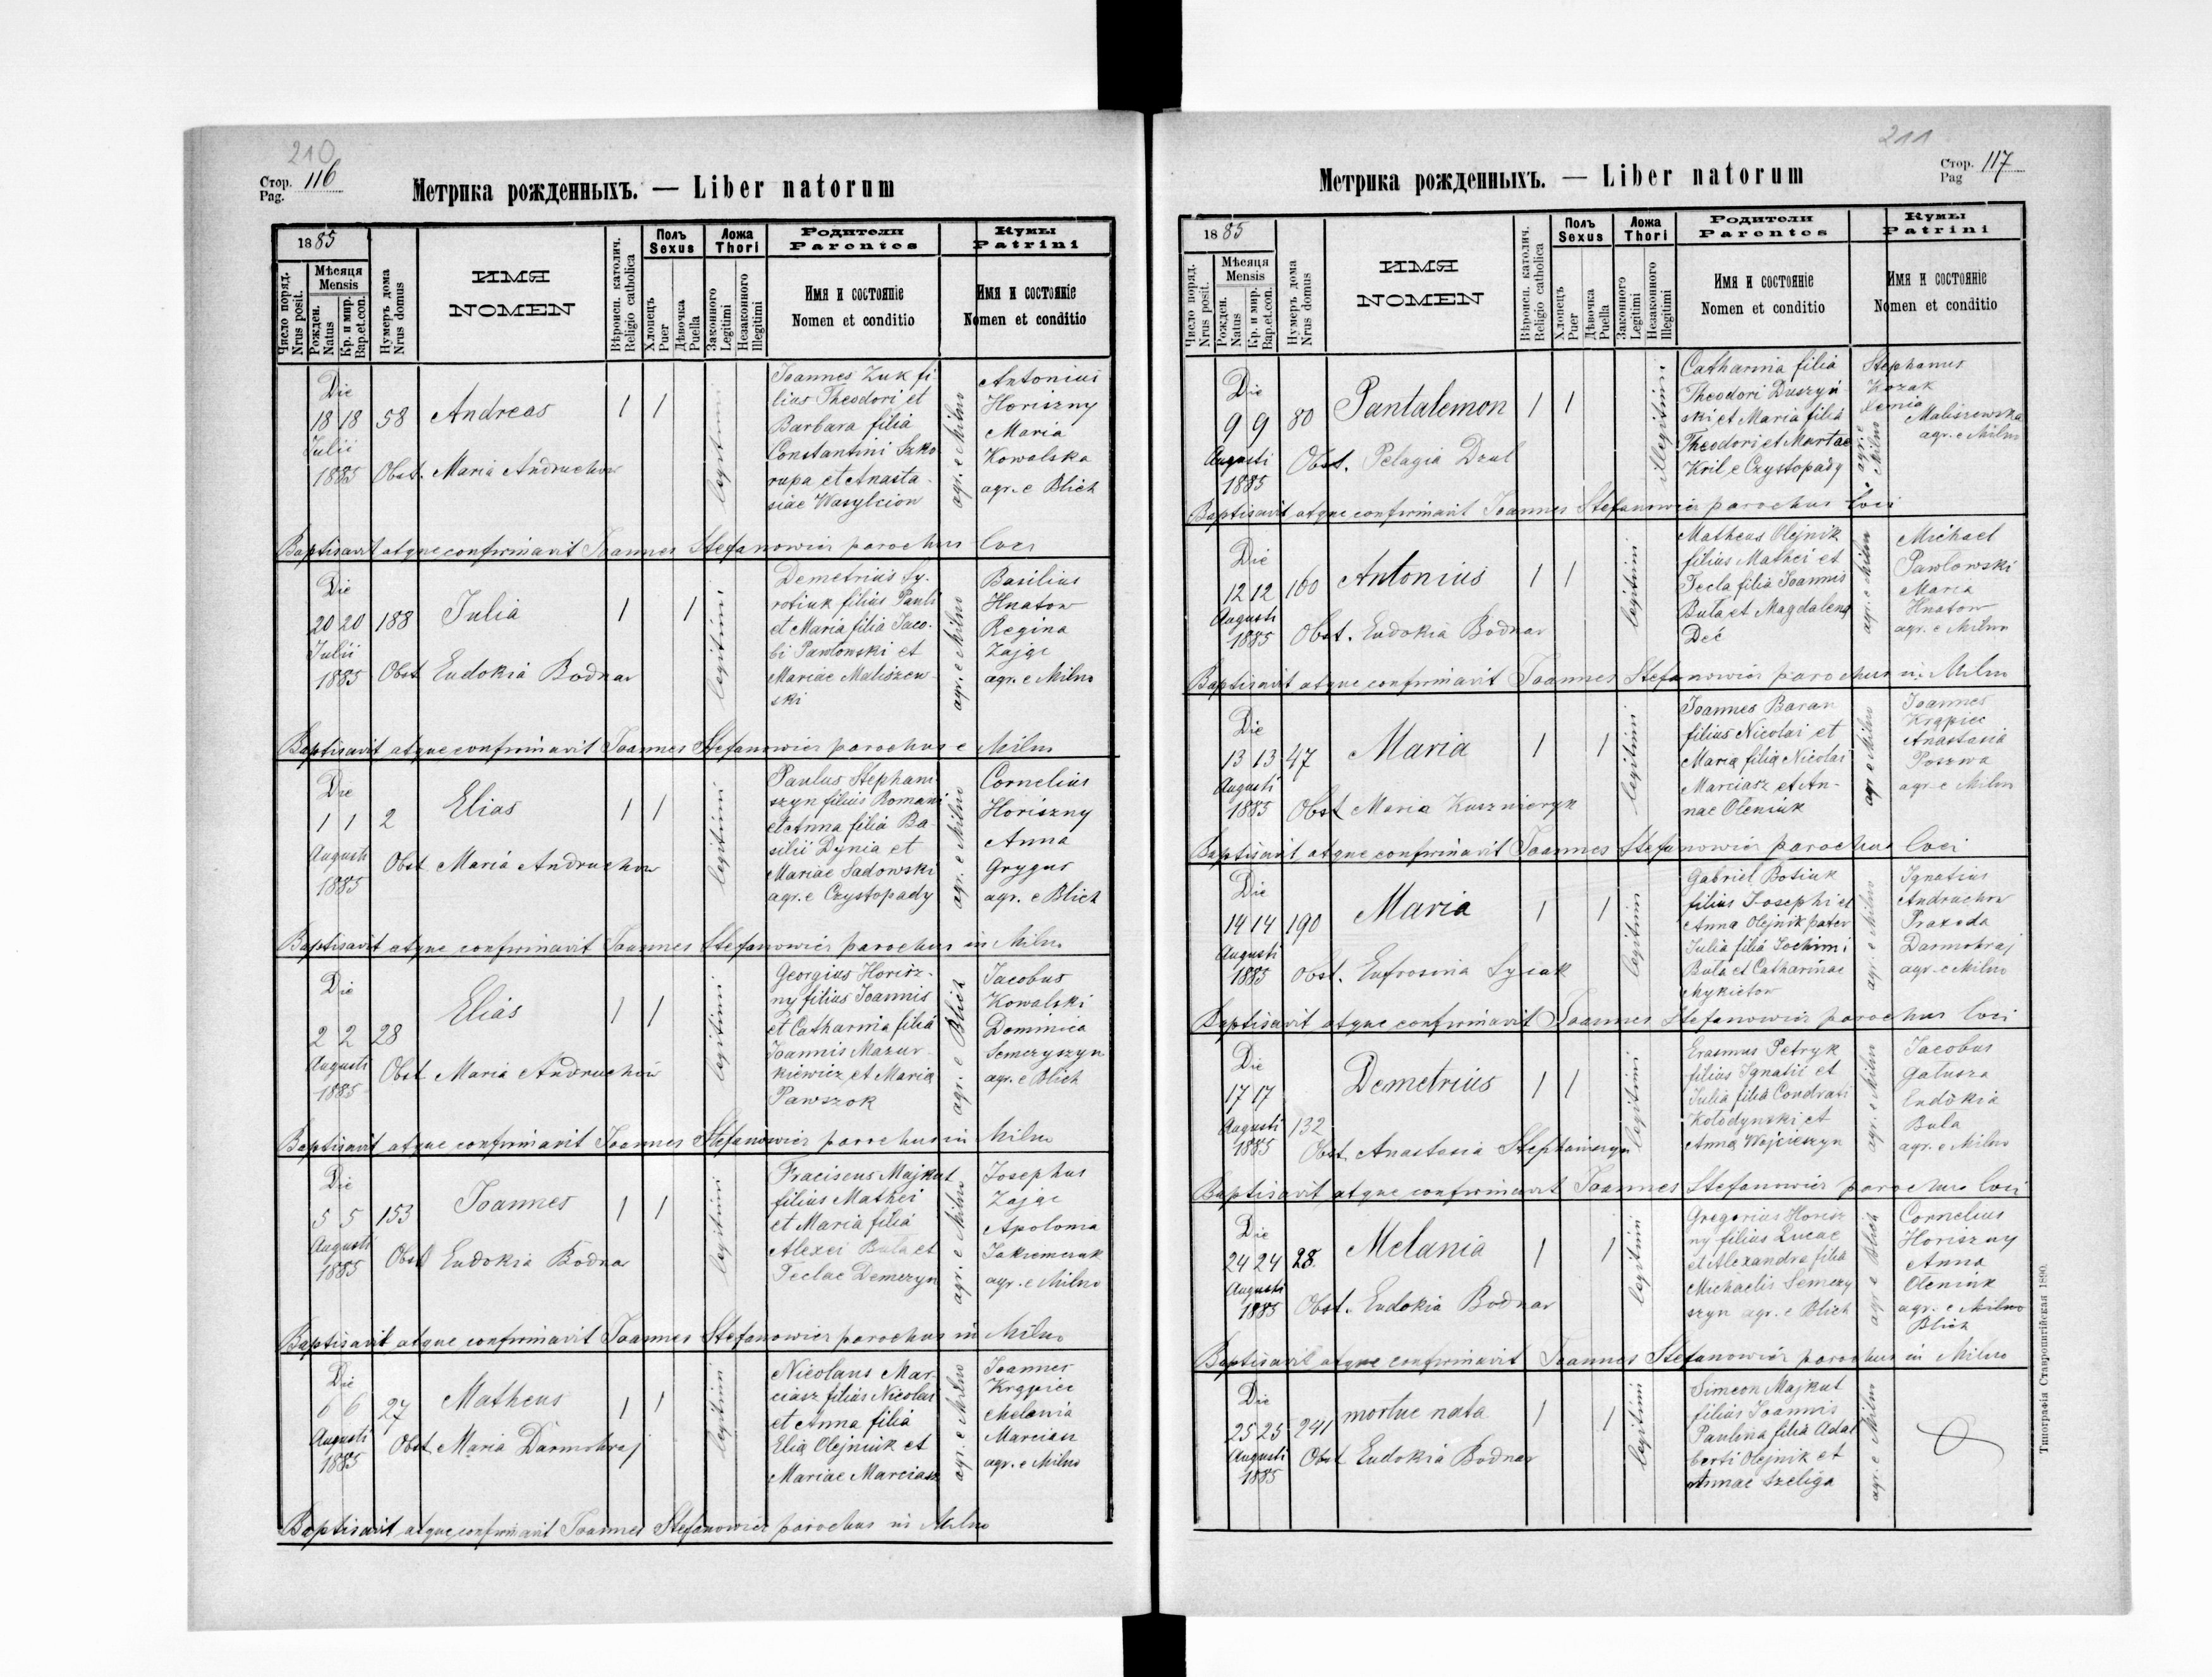 210
Стор. 116
Pag.
Метрика рожденныхъ. — Liber natorum
1885
Число поряд.
Nrus posit.
Мѣсяця
Mensis
Рожден.
Natus
Кр. и мир.
Bap.et.con.
Нумеръ дома
Nrus domus
ИМЯ
NOMEN
Вѣроисп. католич.
Religio catholica
Полъ
Sexus
Хлопецъ
Puer
Дѣвочка
Puella
Ложа
Thori
Законного
Legitimi
Незаконного
Illegitimi
Родители
Parentes
Имя и состояніе
Nomen et conditio
Кумы
Patrini
Имя и состояніе
Nomen et conditio
Die
18 18 58 Andreas 1 1
Julii
1885 Obst. Maria Andruchow
legitimi
Joannes Zuk fi-
lius Theodori et
Barbara filia
Constantini Szko
rupa et Anasta-
siae Wasylciow
agr. e Milno
Antonius
Horiszny
Maria
Kowalska
agr. e Blich
Baptisavit atque confirmavit Joannes Stefanowicz parochus loci
Die
20 20 188 Julia 1 1
Julii
1885 Obst Eudokia Bodnar
legitimi
Demetrius Sy-
rotiuk filius Pauli
et Maria filia Jaco-
bi Pawlowski et
Mariae Maliszew-
ski
agr. e Milno
Basilius
Hnatow
Regina
Zając
agr. e Milno
Baptisavit atque confirmavit Joannes Stefanowicz parochus e Milno
Die
1 1 2 Elias 1 1
Augusti
1885 Obst Maria Andruchow
legitimi
Paulus Stephani-
szyn filius Romani
et Anna filia Ba-
silii Dynia et
Mariae Sadowski
agr. e Czystopady
agr. e Milno
Cornelius
Horiszny
Anna
Grygus
agr. e Blich
Baptisavit atque confirmavit Joannes Stefanowicz parochus in Milno
Die
2 2 28 Elias 1 1
Augusti
1885 Obst Maria Andruchow
legitimi
Georgius Horisz-
ny filius Joannis
et Catharina filia
Joannis Mazur-
kiewicz et Maria
Pawszok
agr. e Blich
Jacobus
Kowalski
Dominica
Semczyszyn
agr. e Blich
Baptisavit atque confirmavit Joannes Stefanowicz parochus in Milno
Die
5 5 153 Joannes 1 1
Augusti
1885 Obst Eudokia Bodnar
legitimi
Fraciscus Majkut
filius Mathei
et Maria filia
Alexei Buta et
Teclae Demczyn
agr. e Milno
Josephus
Zając
Apolonia
Jakremczuk
agr. e Milno
Baptisavit atque confirmavit Joannes Stefanowicz parochus in Milno
Die
6 6 27 Matheus 1 1
Augusti
1885 Obst Maria Darmohraj
legitimi
Nicolaus Mar-
ciasz filius Nicolai
et Anna filia
Elia Olejniuk et
Mariae Marciasz
agr. e Milno
Joannes
Krąpiec
Melania
Marciasz
agr. e Milno
Baptisavit atque confirmavit Joannes Stefanowicz parochus in Milno
211
Стор. 117
Pag
Метрика рожденныхъ. — Liber natorum
1885
Число поряд.
Nrus posit.
Мѣсяця
Mensis
Рожден.
Natus
Кр. и мир.
Bap.et.con.
Нумеръ дома
Nrus domus
ИМЯ
NOMEN
Вѣроисп. католич.
Religio catholica
Полъ
Sexus
Хлопецъ
Puer
Дѣвочка
Puella
Ложа
Thori
Законного
Legitimi
Незаконного
Illegitimi
Родители
Parentes
Имя и состояніе
Nomen et conditio
Кумы
Patrini
Имя и состояніе
Nomen et conditio
Die
9 9 80 Pantalemon 1 1
Augusti
1885 Obst. Pelagia Dzul
illegitimi
Catharina filia
Theodori Duszyń-
ski et Maria filia
Theodori et Martae
Kril e Czystopady
agr. e Milno
Stephanus
Kozak
Xenia
Maliszewska
agr. e Milno
Baptisavit atque confirmavit Joannes Stefanowicz parochus loci
Die
12 12 160 Antonius 1 1
Augusti
1885 Obst. Eudokia Bodnar
legitimi
Matheus Olejnik
filius Mathei et
Tecla filia Joannis
Buta et Magdalena
Deć
agr. e Milno
Michael
Pawlowski
Maria
Hnatow
agr. e Milno
Baptisavit atque confirmavit Joannes Stefanowicz parochus in Milno
Die
13 13 47 Maria 1 1
Augusti
1885 Obst Maria Kusznieryk
legitimi
Joannes Baran
filius Nicolai et
Maria filia Nicolai
Marciasz et An-
nae Oleniuk
agr e Milno
Joannes
Krąpiec
Anastasia
Poszwa
agr. e Milno
Baptisavit atque confirmavit Joannes Stefanowicz parochus loci
Die
14 14 190 Maria 1 1
Augusti
1885 Obst. Eufrosina Syiak
legitimi
Gabriel Bosiuk
filius Josephi et
Anna Olejnik pater
Julia filia Jochimi
Buta et Catharinae
Mykietow
agr. e Milno
Ignatius
Andruchow
Praxeda
Darmohraj
agr. e Milno
Baptisavit atque confirmavit Joannes Stefanowicz parochus loci
Die
17 17 Demetrius 1 1
Augusti 132
1885 Obst. Anastasia Stephaniszyn
legitimi
Erasmus Petryk
filius Ignatii et
Julia filia Condrati
Kolodynski et
Anna Wojcieszyn
agr. e Milno
Jacobus
Galusza
Eudokia
Bula
agr. e Milno
Baptisavit atque confirmavit Joannes Stefanowicz parochus loci
Die
24 24 28. Melania 1 1
Augusti
1885 Obst. Eudokia Bodnar
legitimi
Gregorius Horisz
ny filius Lucae
et Alexandra filia
Michaelis Semczy
szyn agr. e Blich
agr e Blich
Cornelius
Horiszny
Anna
Oleniuk
agr. e Milno
Blich
Baptisavit atque confirmavit Joannes Stefanowicz parochus in Milno
Die
25 25 241 mortue nata 1 1
Augusti
1885 Obst Eudokia Bodnar
legitimi
Simeon Majkut
filius Joannis
Paulina filia Adal
berti Olejnik et
Annae Szeliga
agr. e Milno
Типографія Ставропигійская 1890.